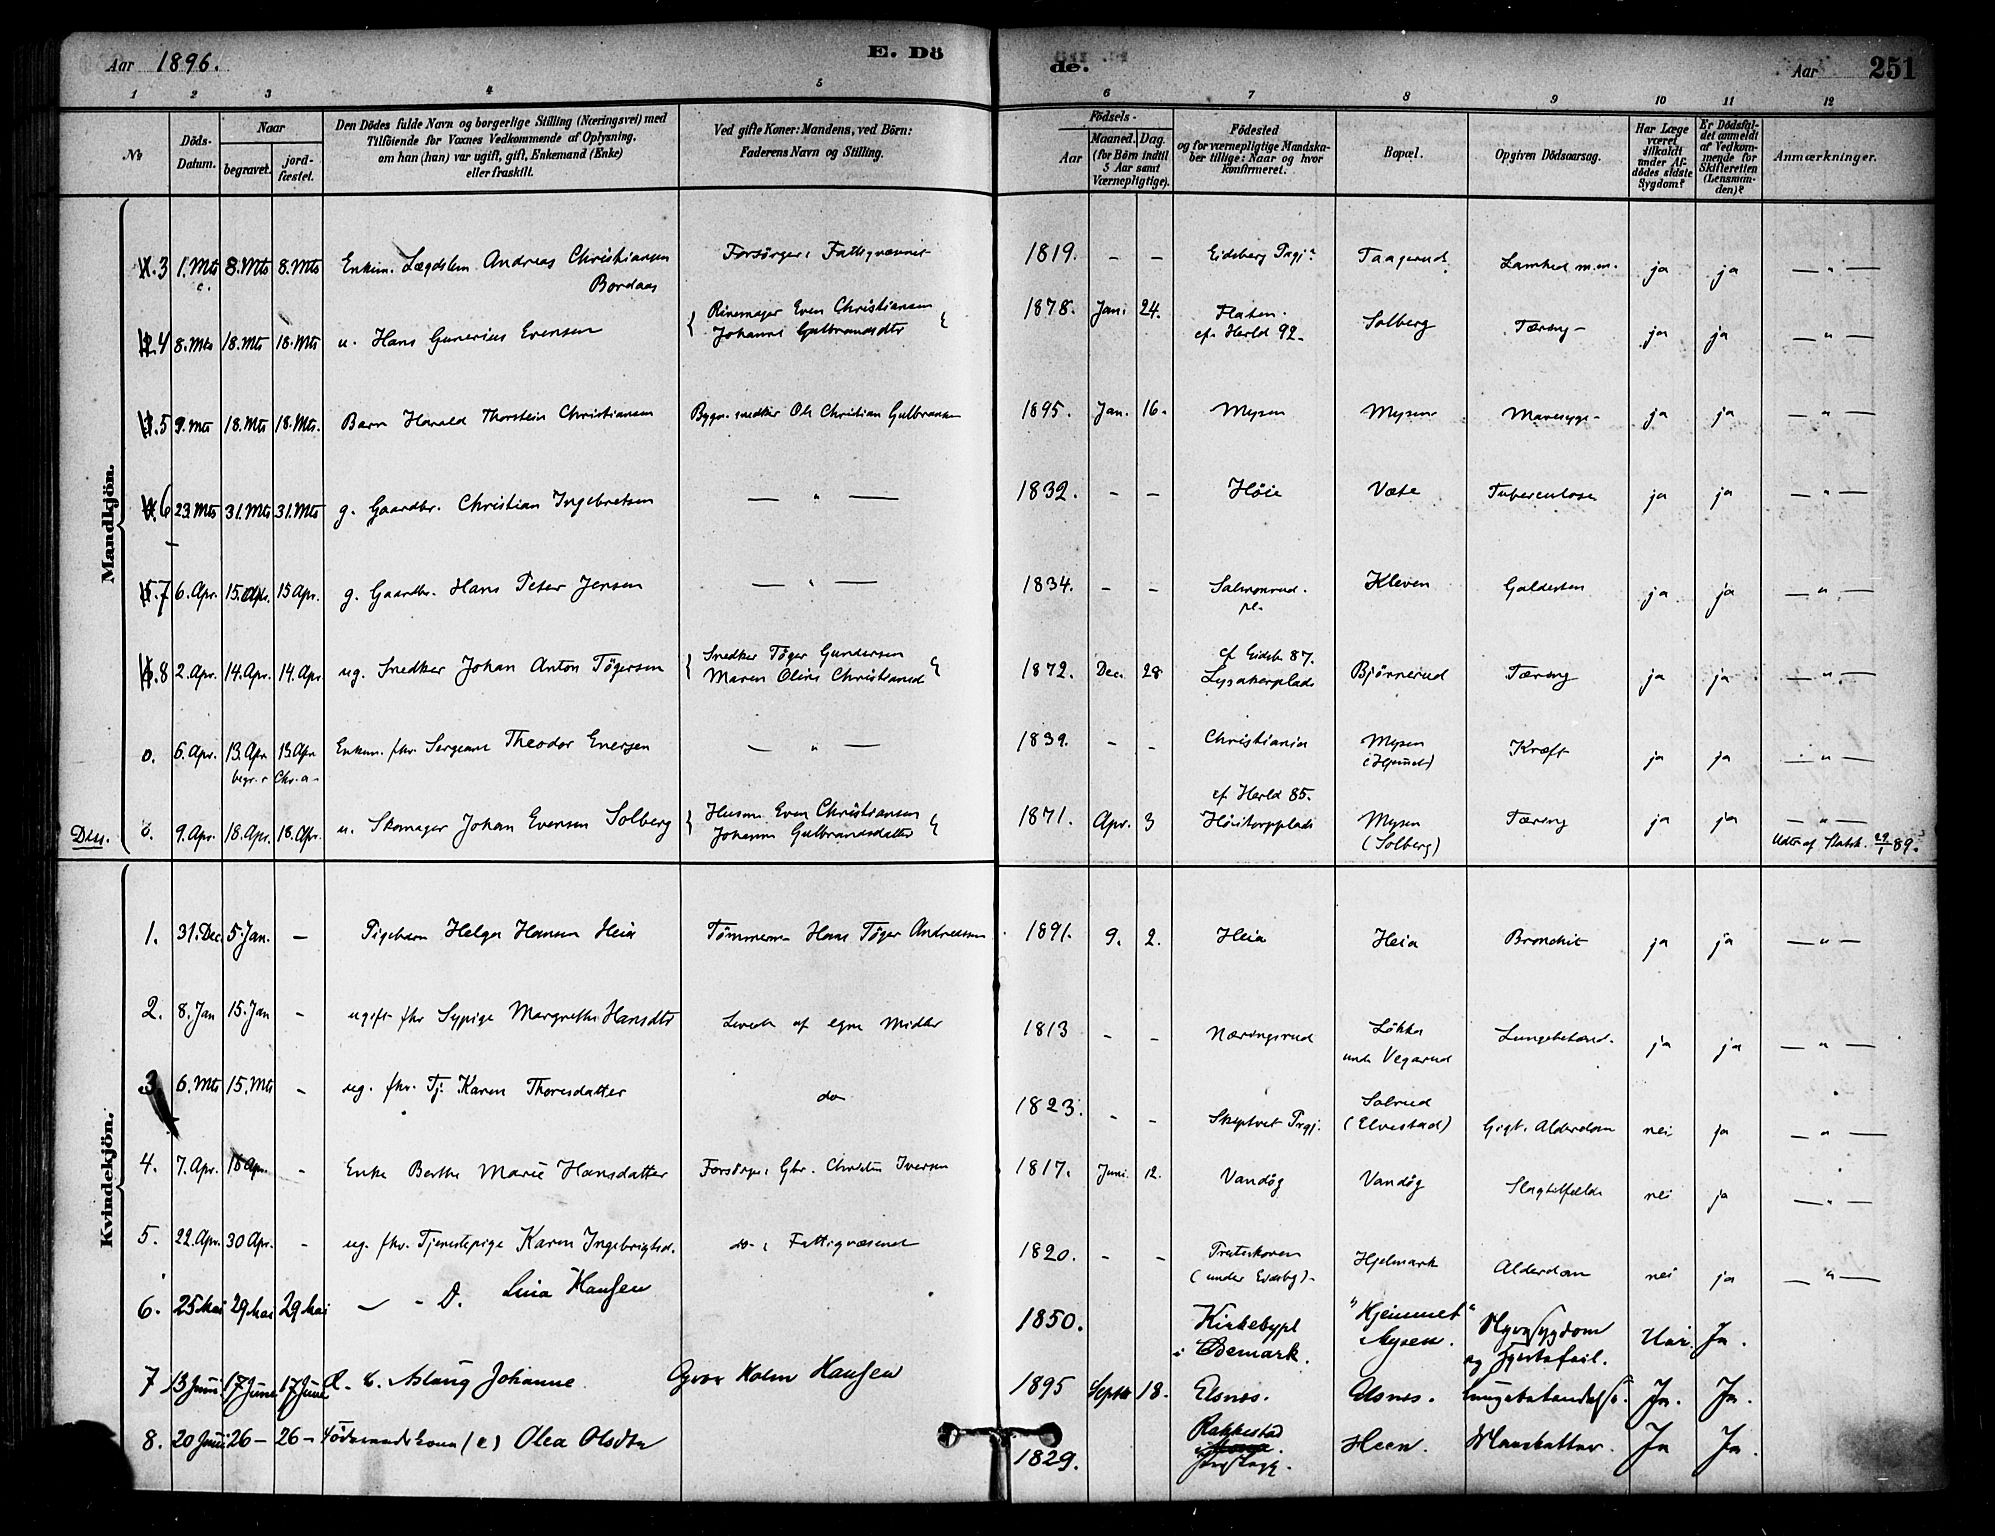 Aar 1896.
E. Dö
de.
Aar
251
1 2 3 4 5 6 7 8 9 10 11 12
No
Döds-Datum.
Naar
begravet.
jord-fæstet.
Den Dödes fulde Navn og borgerlige Stilling (Næringsvei) med
Tilföiende for Voxnes Vedkommende af Oplysning,
om han (hun) var ugift, gift, Enkemand (Enke)
eller fraskilt.
Ved gifte Koner: Mandens, ved Börn:
Faderens Navn og Stilling.
Födsels-
Aar
Maaned. Dag.
(for Börn indtil
5 Aar samt
Værnepligtige).
Födested
og for værnepligtige Mandska-
ber tillige: Naar og hvor
konfirmeret.
Bopæl.
Opgiven Dödsaarsag.
Har Læge
været
tilkaldt
under Af-
dödes sidste
Sygdom?
Er Dödsfal-
det anmeldt
af Vedkom-
mende for
Skifteretten
(Lensman-
den)?
Anmærkninger.
Mandkjön.
3 1. Mts 8. Mts 8. Mts Enkm. Lægdslem Andreas Christiansen Forsörger: Fattigvæsenet 1819. - - Eidsberg Prgj. Taagerud Lamhed m.m. ja ja — " —
Bordaas
4 8. Mts 18. Mts 18. Mts u. Hans Gunerius Evensen { Rivemager Even Christiansen 1878. Jan. 24. Flaten. Solberg Tæring - ja ja — " —
Johanne Gulbrandsdtr cf. Herld 92.
5 9. Mts 18. Mts 18. Mts. Barn Harald Thorstein Christiansen Bygn. snedker Ole Christian Gulbransen 1895. Jan. 16. Mysen Mysen Mavesyge - ja ja — " —
6 23. Mts 31. Mts 31. Mts g. Gaardbr. Christian Ingebretsen — " — 1832. - - Höie Væte Tuberculose ja ja — " —
7 6. Apr. 15. Apr. 15 Apr. g. Gaardbr. Hans Peter Jensen — " — 1834. - - Salmonrud Kleven Galdesten ja ja — " —
pl.
8 2. Apr. 14. Apr. 14. Apr ug. Snedker Johan Anton Tögersen { Snedker Töger Gundersen 1872. Dec. 28 cf Eidsb. 87. Bjørnerud Tæring ja ja — " —
Maren Olive Christiansd Lysakerplads
0. 6. Apr. 13. Apr 13. Apr Enkm. fhv. Sergeant Theodor Evensen — " — 1839. - - Christiania Mysen Kræft ja ja — " —
begr. Chr.a (Hjemmet)
Diss. 0. 9. Apr. 18. Apr. 18. Apr. u. Skomager Johan Evensen Solberg { Husm. Even Christiansen 1871. Apr. 3 cf Herld 85. Mysen Tæring ja ja — " —
Johanne Gulbrandsdatter Höitorpplads (Solberg) Udtr. af Statsk. 29/1 89.
Kvindekjön.
1. 31. Dec. 5. Jan. - Pigebarn Helga Hansen Heia Tömmerm. Hans Töger Andreassen 1891. 9. 2. Heia Heia Bronchit ja ja — " —
2. 8. Jan 15. Jan - ugift fhv Sypige Margrethe Hansdtr Levede af egne Midler 1813 - - Næringsrud Løkka Lungebetænd. ja ja — " —
under Vegarud
3 6. Mts 15. Mts - ug. fhv. Tj. Karen Thoresdatter do 1823. - - Skiptvet Prgj. Solrud Gigt. Alderdom nei ja — " —
(Elvestad)
4. 7. Apr. 18 Apr. - Enke Berthe Marie Hansdatter Forsörger: Gbr. Christen Iversen 1817. Juni 12. Vandög Vandög Slagtilfælde nei ja — " —
5. 22. Apr. 30 Apr. - ug. fhv. Tjenestepige Karen Ingebrigtsd. do : Fattigvæsenet 1820. - - Hjelmark Alderdom nei ja — " —
6. 25 Mai 29 Mai 29 Mai — - D. Lina Hansen 1850. Kirkebypl "Hjemmet" Nyresygdom Ja.
i Ödemark. Mysen. og Hjertefeil.
7 13 Juni 17 June 17 June Aslaug Johanne Holm Hansen 1895 Septbr 18. Elsnes. Elsnes. Lungebetændelse. Ja. Ja.
8. 20 Juni 26 - 26 - Föderaadskone (e) Olea Olsdtr 1829. Rakkestad Heen. Mavekatar. Ja Ja.